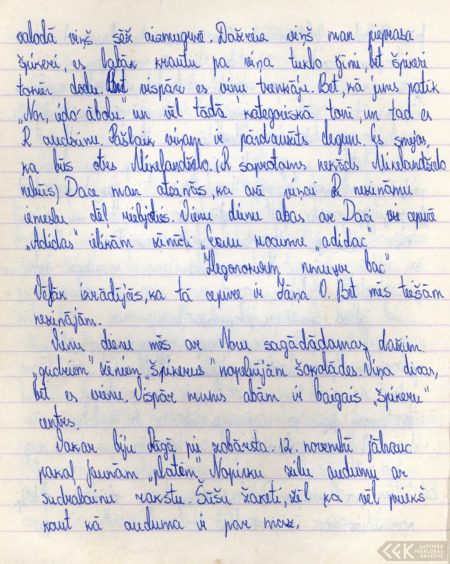 valodā viņš sēž aizmugurē. Dažreiz viņš man pieprasa
špikeri, es labāk krautu pa viņa tuklo ģīmi, bet špikeri
tomēr dodu. Bet vispār es viņu trenkāju. Bet, kā jums patīk
"Nor, iedo ābolu" un vēl tādā kategoriskā tonī, un tad es
R audzinu. Pašlaik viņam ir pārdauzīts deguns. Es smejos,
ka būs otrs Mikelandželo. (R saprotams nekāds Mikelandželo
nebūs) Dace man atzinās, ka arī viņai R nezināmu
iemeslu dēļ riebjoties. Vienu dienu abas ar Daci cepurē
"Adidas" ielikām zīmīti "Если носите "adidac"
Недоноски пишут вас"
Vēlāk izrādījās, ka tā cepure ir Jāņa O. Bet mēs tiešām
nezinājām.
Vienu dienu mēs ar Noru sagādādamas dažiem
"gudriem" zēniem "špikerus" nopelnījām šokolādes. Viņa divas,
bet es vienu. Vispār mums abām ir baigais "špikeru"
centrs.
Vakar biju Rīgā pie zobārsta. 12. novembrī jābrauc
pakaļ jaunām "platēm". Nopirku zilu audumu ar
sudrabainu rakstu. Šūšu žaketi, žēl ka vēl priekš
kaut kā auduma ir par maz.
LATVIEŠU FOLKLORAS KRĀTUVE